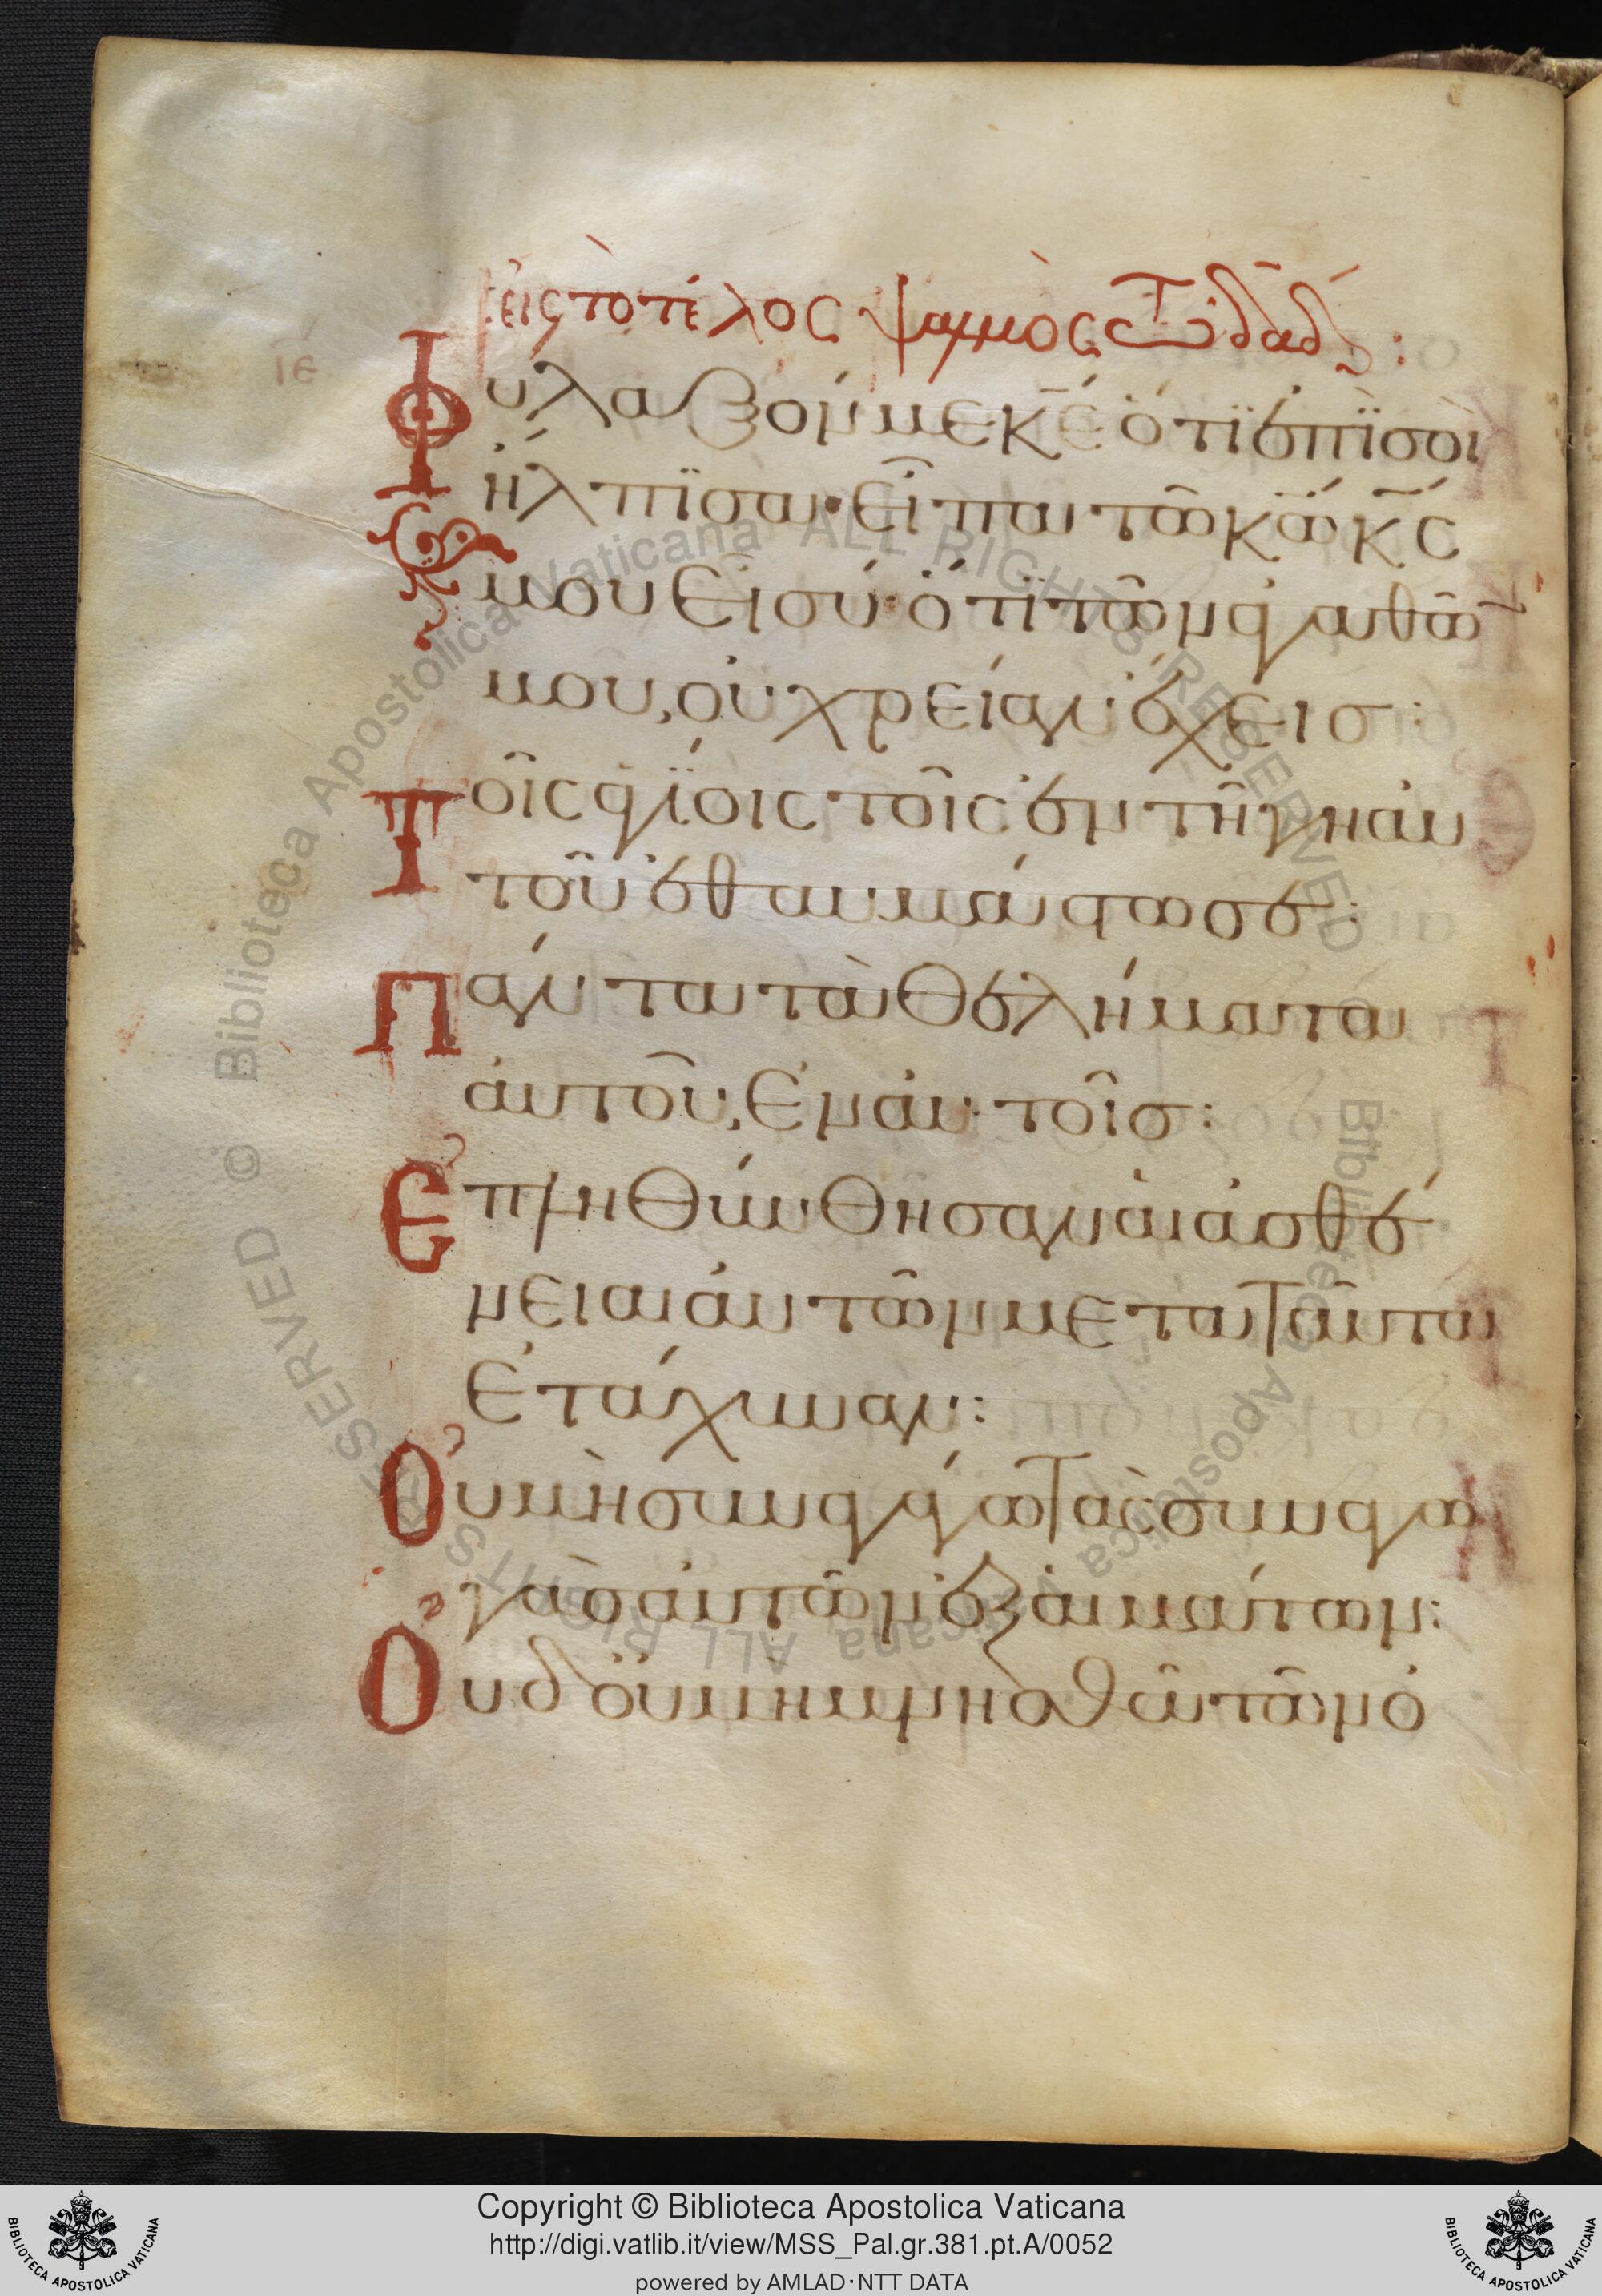 εἰς τὸ τέλος ψαλμὸς τῷ δᾱδ:
ιε
Φύλαξόν με κ̄ε ὅτι ἐπὶ σοὶ
ἤλπισα· εἶπα τῶ κ̄ω κ̄ς
μου εἶ σύ· ὅτι τῶν ἀγαθῶ̄
μου, οὐ χρείαν ἔχεις:
Τοῖς ἁγίοις τοῖς ἐν τῆ γῆ αὐ
τοῦ ἐθαυμάστωσε:
Πάντα τὰ θελήματα
αὐτοῦ, ἐν αὐτοῖς:
Ἐπληθύνθησαν αἱ ἀσθέ
νειαι αὐτῶν μετὰ ταῦτα
ἐτάχυναν:
Οὐ μὴ συναγάγω τὰς συναγω
γὰς αὐτῶν ἐξ αἱμάτων:
Οὐδ οὐ μὴ μνησθῶ τῶν ὀ
Copyright © Biblioteca Apostolica Vaticana
http://digi.vatlib.it/view/MSS_Pal.gr.381.pt.A/0052
powered by AMLAD·NTT DATA
BIBLIOTECA APOSTOLICA VATICANA
BIBLIOTECA APOSTOLICA VATICANA
© Biblioteca Apostolica Vaticana ALL RIGHTS RESERVED
Biblioteca Apostolica Vaticana ALL RIGHTS RESERVED